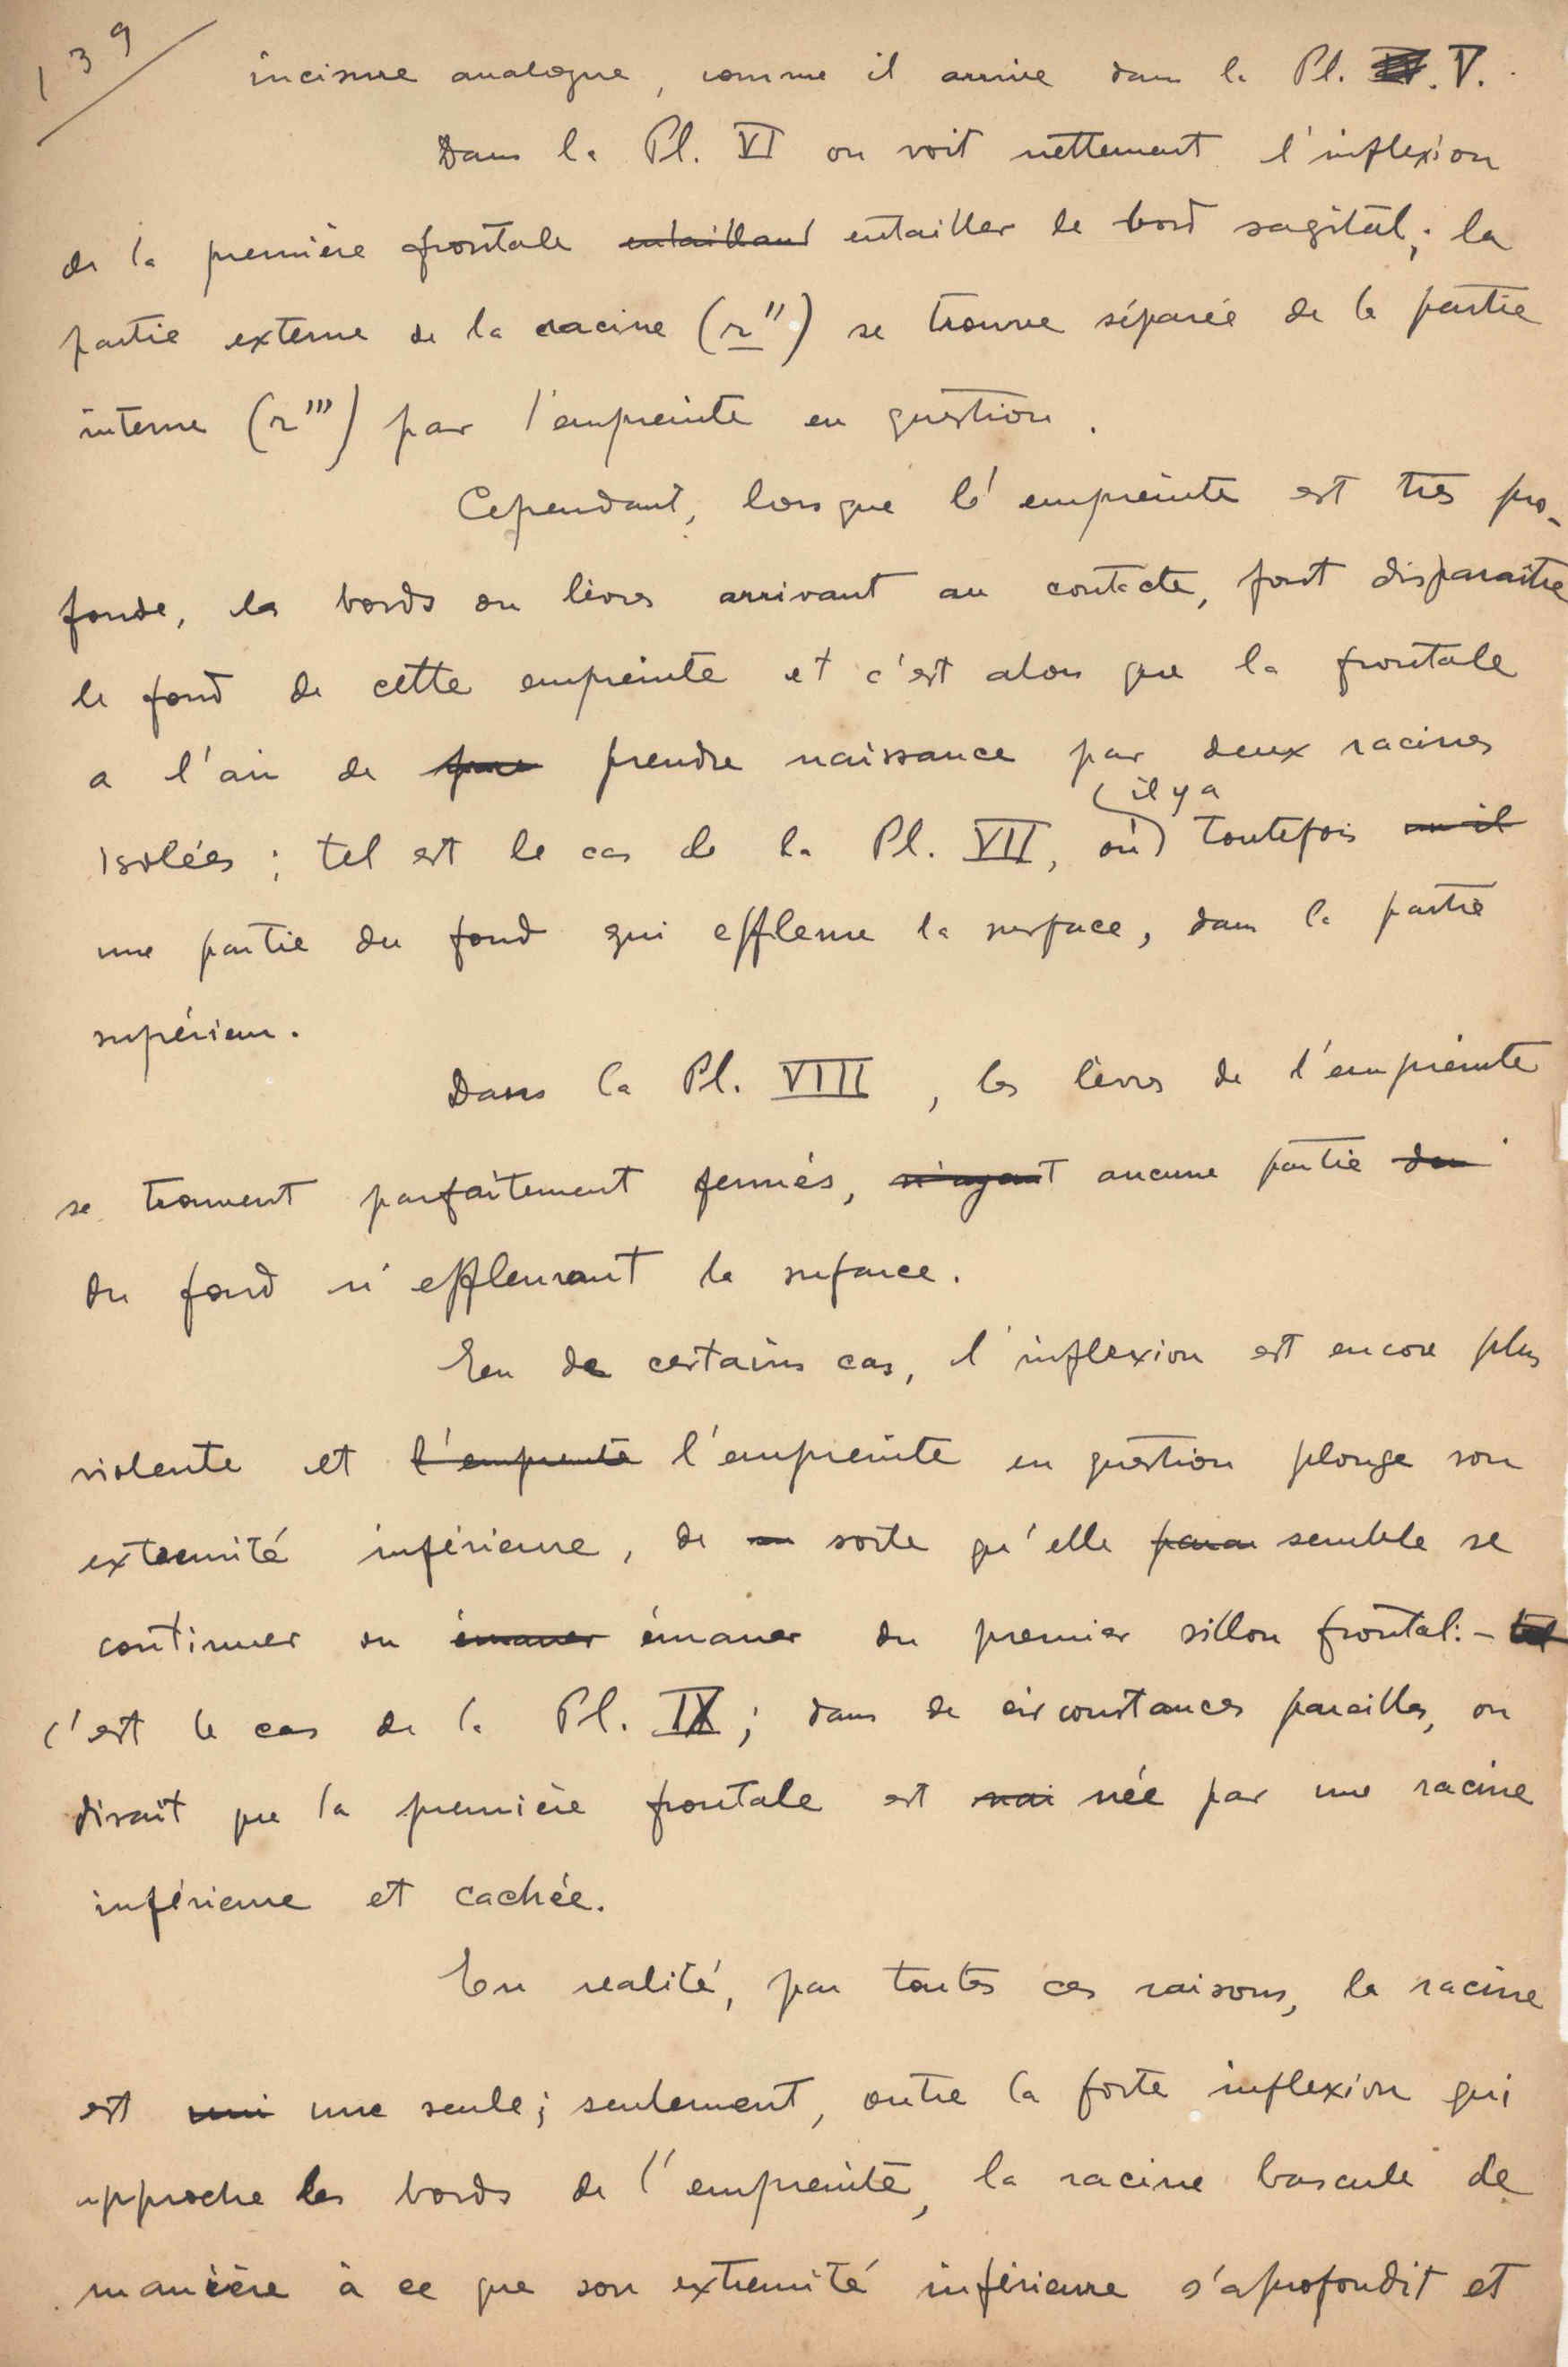 139
incisure analogue, comme il arrive dans la Pl. V.
Dans la Pl. VI on voit nettement l'inflexion
de la première frontale entaillant entailler le bord sagital; la
partie externe de la racine (r'') se trouve séparée de la partie
interne (r''') par l'empreinte en question.
Cependant, lorsque l'empreinte est très pro-
fonde, les bords ou lèvres arrivant au contacte, font disparaître
le fond de cette empreinte et c'est alors que la frontale
a l'air de prendre naissance par deux racines
il y a
isolées; tel est le cas de la Pl. VII, où toutefois ou il
une partie du fond qui effleure la surface, dans la partie
supérieur.
Dans la Pl. VIII, les lèvres de l'empreinte
se trouvent parfaitement fermés, n'ayant aucune partie du
du fond n'effleurant la surface.
En de certains cas, l'inflexion est encore plus
violente et l'empreinte l'empreinte en question plonge son
extremité inférieure, de sorte qu'elle semble se
continuer ou émaner émaner du premier sillon frontal: - tel
c'est le cas de la Pl. IX; dans de circonstances pareilles, on
dirait que la première frontale est nai née par une racine
inférieure et cachée.
En realité, par toutes ces raisons, la racine
est uni une seule; seulement, outre la forte inflexion qui
approche les bords de l'empreinte, la racine bascule de
manière à ce que son extremité inférieure s'aprofondit et